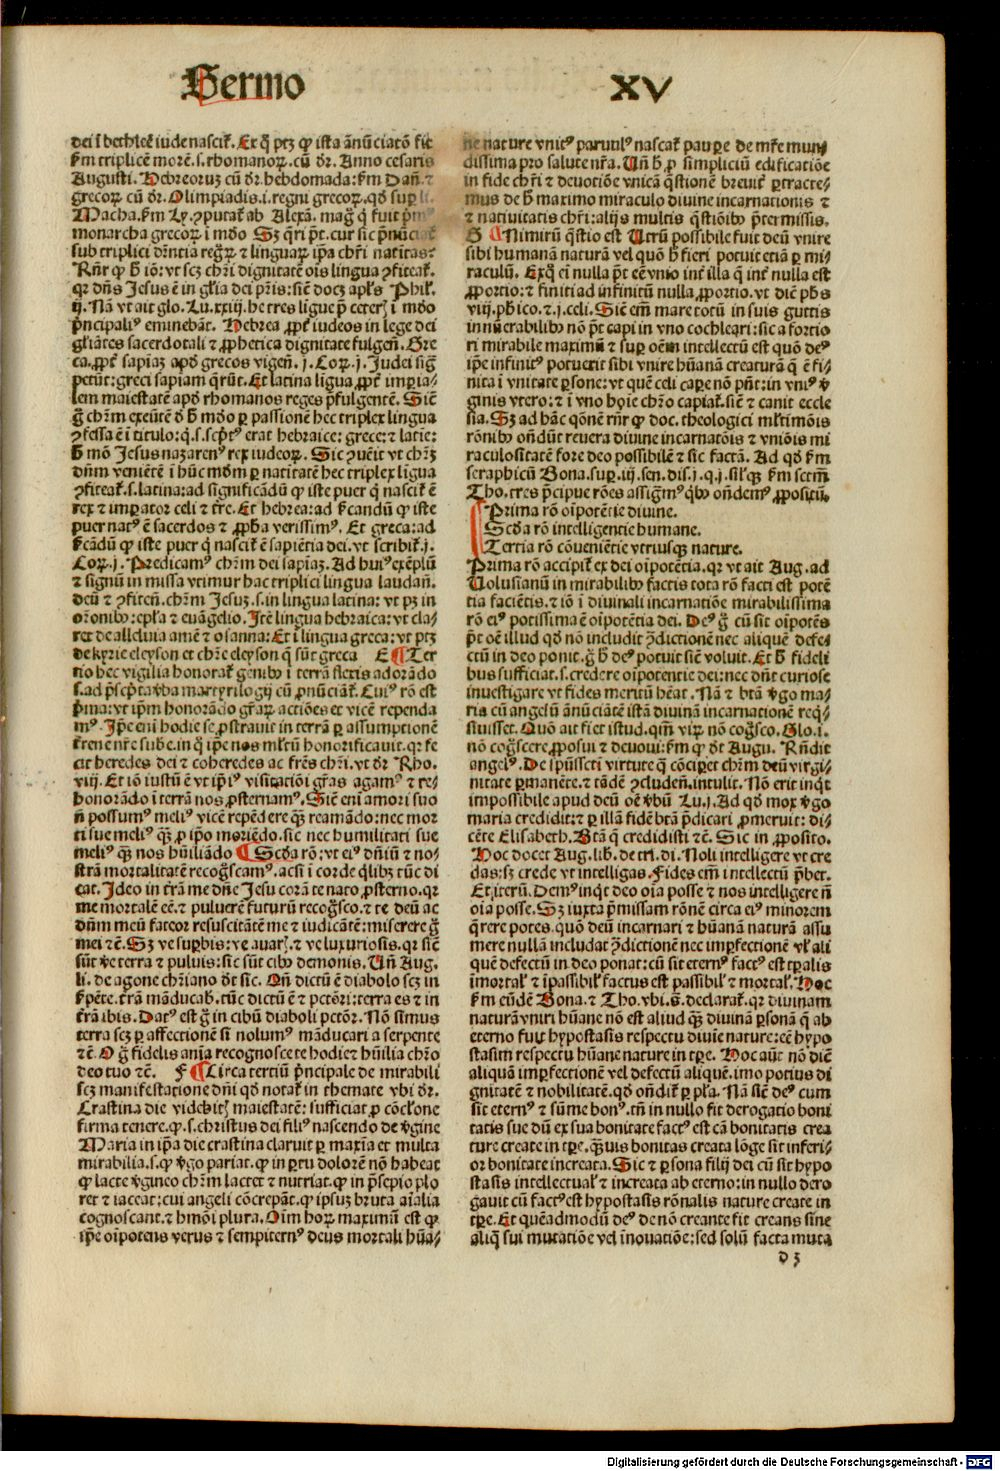 Sermo XV
dei ī bethleē iude nascit̄. Ex q̄ ptꝫ ꝙ ista ānūciatō fit
ẜm triplicē morē.s.rhomanoꝝ.cū dr̄. Anno cesaris
Augusti. Hebreoruꝫ cū dr̄.hebdomada:ẜm Dan̄.⁊
grecoꝝ cū dr̄. Olimpiadis.i.regni grecoꝝ.qd̄ suꝑ li.
Macha.ẜm Ly.ꝯputat̄ ab Alexā. maḡ q̄ fuit pͥmꝰ
monarcha grecoꝝ ī mūdo Sꝫ q̄ri pt̄. cur sic ꝓnūciat̄
sub triplici dr̄ntia reḡꝝ ⁊ linguaꝝ ip̄a chr̄i natitas:
Rn̄r ꝙ ħ iō: vt scꝫ chr̄i dignitatē oīs lingua ꝯfiteat̄.
qꝛ dn̄s Jesus ē in gl̄ia dei pr̄is: sic̄ docꝫ apl̄s Phil̄.
ij. Nā vt ait glo. Lu.xxiij. he tres ligue p̄ ceteꝝ ī mūdo
pͥncipaliꝰ eminebāt. Hebrea ꝓpt̄ iudeos in lege dei
gl̄iātes sacerdotali ⁊ ꝓphetica dignitate fulgen̄. Gre
ca.ꝓpt̄ sapiaꝫ apd̄ grecos vigen̄. j. Coꝝ. j. Judei siḡ
petūt: greci sapiam q̄rūt. Et latina līgua ꝓpt̄ imꝑia⸗
lem maiestatē apd̄ rhomanos reges p̄fulgentē. Sic̄
ḡ chr̄m exeūtē d̄ ħ mūdo ꝑ passionē hec triplex lingua
ꝯfessa ē ī titulo: q̄.s.scpͥtꝰ erat hebraice: grece: ⁊ latīe:
ħ mō Jesus nazarenꝰ rex iudeoꝝ. Sic ꝯuēit vt chr̄ꝫ
dn̄m veniētē ī hūc mūdm ꝑ natītatē hec triplex līgua
ꝯfiteat̄.s.latina: ad significādū ꝙ iste puer q̄ nascit̄ ē
rex ⁊ imꝑator celi ⁊ tr̄e. Et hebrea: ad ẜcandū ꝙ iste
puer natꝰ ē sacerdos ⁊ ꝓpħa verissimꝰ. Et greca: ad
ẜcādū ꝙ iste puer q̄ nascit̄ ē sapiētia dei. vt scribit̄.j.
Coꝝ.j. Predicamꝰ chr̄m dei sapiaꝫ. Ad huiꝰ exēplū
⁊ signū in missa vtimur hac triplici lingua laudan̄.
deū ⁊ ꝯfiten̄. chr̄m Jesuꝫ.s.in lingua latina: vt pꝫ in
or̄onibꝰ: ep̄la ⁊ euāgelio. Itē lingua hebraica: vt cla⸗
ret de alleluia amē ⁊ osanna: Et ī lingua greca: vt ptꝫ
de kyrie eleyson et chr̄e eleyson q̄ sūt greca E ¶ Ter
tio hec vigilia honorat̄ genibꝰ ī terrā flexis adorādo
s.ad pͥscpͥta v̄ba martyrilogij cū ꝓnūciāt̄. Cuiꝰ rō est
pͥma: vt ip̄m honorādo gr̄aꝝ actiōes et vicē rependa
mꝰ. Ip̄e eni hodie se ꝓstrauit in terrā ꝑ assumptionē
tr̄en̄e nr̄e sube.in q̄ ip̄e nos ml̄tū honorificauit. qꝛ fe
cit heredes dei ⁊ coheredes ac fr̄es chr̄i. vt dr̄ Rho.
viij. Et iō iustū ē vt ip̄iꝰ visitatiōi gr̄as agamꝰ ⁊ re⸗
honorādo ī terrā nos ꝓsternamꝰ. Sic̄ eni amori suo
n̄ possumꝰ meliꝰ vicē repēdere qꝫ reamādo: nec mor
ti sue meliꝰ qꝫ ꝓ ip̄o moriēdo. sic nec humilitati sue
meliꝰ qꝫ nos hūiliādo ¶ Scd̄a rō: vt eiꝰ dn̄iū ⁊ no⸗
strā mortalitatē recoḡscamꝰ. acsi ī corde q̄libꝫ tūc di
cat. Ideo in tr̄rā me dn̄e Jesu corā te nato ꝓsterno. qꝛ
me mortalē eē. ⁊ puluerē futurū recoḡsco. ⁊ te deū ac
dn̄m meū fateor resuscitātē me ⁊ iudicātē: miserere ḡ
mei ⁊c̄. Sꝫ ve suꝑbis: ve auaꝝ. ⁊ ve luxuriosis. qꝛ sic̄
sūt v̄e terra ⁊ puluis: sic sūt cibꝰ demonis. Vn̄ Aug.
li. de agone chr̄iano dr̄t sic. Qn̄ dictū ē diabolo scꝫ in
ẜpēte. tr̄rā māducab̄. tūc dictū ē ⁊ pctōri: terra es ⁊ in
tr̄rā ibis. Datꝰ est ḡ in cibū diaboli pctōr. Nō simus
terra scꝫ ꝑ affectionē si nolumꝰ māducari a serpente
⁊c̄. O ḡ fidelis anīa recognoscete hodie hūilia chr̄o
deo tuo ⁊c̄. F ¶ Circa tertiū pͥncipale de mirabili
scꝫ manifestatione dn̄i qd̄ notat̄ in themate vbi dr̄.
Crastina die videbitꝭ maiestatē: sufficiat ꝓ cōcl̄one
firma tenere. ꝙ.s.christus dei filiꝰ nascendo de v̄gine
Maria in ip̄a die crastina claruit ꝑ maxīa et multa
mirabilia.s.ꝙ v̄go pariat. ꝙ in ꝑtu dolorē nō habeat
ꝙ lacte v̄gineo chr̄m lactet ⁊ nutriat. ꝙ in p̄sepio plo
ret ⁊ iaceat: cui angeli cōcrepāt. ꝙ ipsuꝫ bruta aīalia
cognoscant. ⁊ hmōi plura. Oīm hoꝝ maximū est ꝙ
ip̄e oīpotens verus ⁊ sempiternꝰ deus mortali hūa⸗
ne nature vnitꝰ paruulꝰ nascat̄ pauꝑe de mr̄e mun⸗
dissima pro salute nr̄a. Vn̄ ħ ꝓ simpliciū edificatiōe
in fide chr̄i ⁊ deuotiōe vnicā q̄stionē breuit̄ ꝑtracte⸗
mus de ħ maximo miraculo diuine incarnationis ⁊
⁊ natiuitatis chr̄i: alijs multis q̄stiōibꝰ p̄termissis.
G ¶ Nimirū q̄stio est Utrū possibile fuit deū vnire
sibi humanā naturā vel quō ħ fieri potuit etiā ꝑ mi⸗
raculū. Ex q̄ ei nulla pt̄ eē vnio int̄ illa q̄ int̄ nulla est
ꝓportio: ⁊ finiti ad infinitū nulla ꝓportio. vt dic̄ pħs
viij. pħico. ⁊.j.celi. Sic̄ em̄ mare totū in suis guttis
innūerabilibꝰ nō pt̄ capi in vno cochleari: sic a fortio
ri mirabile maximū ⁊ suꝑ oēm intellectū est quō deꝰ
ip̄e infinitꝰ potuerit sibi vnire hūanā creaturā q̄ ē fi⸗
nita ī vnitate ꝑsone: vt quē celi caꝑe nō pn̄t: in vniꝰ v̄
ginis vtero: ⁊ ī vno hoīe chr̄o capiat̄. sic̄ ⁊ canit eccle
sia. Sꝫ ad hāc qōnē rn̄r ꝙ doc. theologici ml̄timōis
rōnibꝰ on̄dūt reuera diuine incarnatōis ⁊ vniōis mi
raculositatē fore deo possibilē ⁊ sic factā. Ad qd̄ ẜm
seraphicū Bona. suꝑ. iij. sen. dis. j. q. j. sil̓qꝫ ẜm sctm̄
Tho. tres pͥcipue rōes assiḡmꝰ q̄bꝰ on̄demꝰ ꝓpositū.
Prima rō oīpotētie diuine.
Scd̄a rō intelligentie humane.
Tertia rō cōueniētie vtriusqꝫ nature.
Prima rō accipit̄ ex dei oīpotētia. qꝛ vt ait Aug. ad
Volusianū in mirabilibꝰ factis tota rō facti est potē
tia faciētis. ⁊ iō ī diuinali incarnatiōe mirabilissima
rō eiꝰ potissima ē oīpotētia dei. Deꝰ ḡ cū sit oīpotēs
pt̄ oē illud qd̄ nō includit ꝯdictionē nec aliquē defe⸗
ctū in deo ponit. ḡ ħ deꝰ potuit sicut voluit. Et ħ fideli
bus sufficiat.s.credere oīpotentie dei: nec dn̄t curiose
inuestigare vt fides meritū hēat. Nā ⁊ btā v̄go ma⸗
ria cū angelū ānūciātē istā diuinā incarnationē req̄⸗
siuisset. Quō ait fiet istud. qm̄ viꝝ nō coḡsco. Glo. i.
nō coḡscere ꝓposui ⁊ deuoui: ẜm ꝙ dr̄t Augu. Rn̄dit
angelꝰ. De sp̄ussctī virtute q̄ cōciꝑet chr̄m deū virgi⸗
nitate ꝑmanēte. ⁊ tādē ꝯcluden̄. intulit. Nō erit inq̄t
impossibile apud deū oē v̄bū Lu.j. Ad qd̄ mox v̄go
maria credidit: ⁊ ꝑ illā fidē btā p̄dicari ꝓmeruit: di⸗
cēte Elisabeth. Btā q̄ credidisti ⁊c̄. Sic in ꝓposito.
Hoc docet Aug. lib. de tri. di. Noli intelligere vt cre
das: sꝫ crede vt intelligas. Fides em̄ ī intellectū p̄bet.
Et iterū. Demꝰ inq̄t deo oīa posse ⁊ nos intelligere n̄
oīa posse. Sꝫ iuxta pͥmissam rōnē circa eiꝰ minorem
q̄rere potes. quō deū incarnari ⁊ hūanā naturā assu
mere nullā includat ꝯdictionē nec imꝑfectionē vl̓ ali
quē defectū in deo ponat: cū sit eternꝰ factꝰ est tꝑalis
īmortal̓ ⁊ īpassibil̓ factus est passibil̓ ⁊ mortal̓. Hoc
ẜm eūdē Bona. ⁊ Tho. vbi. s̄. declarat̄. qꝛ diuinam
naturā vniri hūane nō est aliud qꝫ diuinā ꝑsonā q̄ ab
eterno fuit hypostasis respectu diuīe nature: eē hypo
stasim respectu hūane nature in tꝑe. Hoc aūt nō dic̄
aliquā imꝑfectionē vel defectū aliquē. imo potius di
gnitatē ⁊ nobilitatē. qd̄ on̄dit̄ ꝑ pl̄a. Nā sic̄ deꝰ cum
sit eternꝰ ⁊ sūme bonꝰ. tn̄ in nullo fit derogatio boni
tatis sue dū ex sua bonitate factꝰ est cā bonitatis crea
ture create in tꝑe. q̄uis bonitas creata lōge sit inferi⸗
or bonitate increata. Sic ⁊ ꝑsona filij dei cū sit hypo
stasis intellectual̓ ⁊ increata ab eterno: in nullo dero
gauit cū factꝰ est hypostasis rōnalis nature create in
tꝑe. Et quēadmodū deꝰ de nō creante fit creans sine
aliq̄ sui mutatiōe vel inouatiōe: sed solū facta muta
d 3
Digitalisierung gefördert durch die Deutsche Forschungsgemeinschaft - DFG